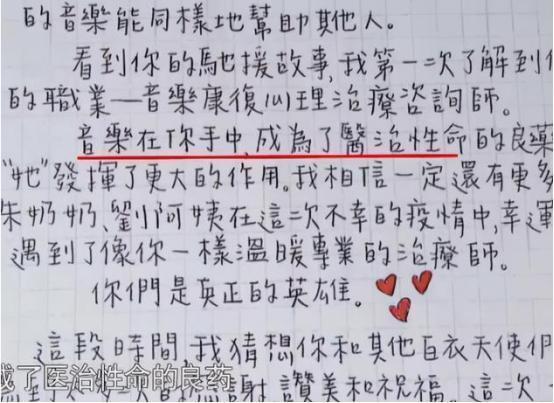 的音樂能同樣地幫助其他人。
看到你的馳援故事,我第一次了解到
的職業—音樂康復心理治療咨詢師。
音樂在你手中,成為了醫治性命的良藥
"她"發揮了更大的作用。我相信一定還有更多
朱奶奶、劉阿姨在這次不幸的疫情中,幸運
遇到了像你一樣溫暖專業的治療師。
你們是真正的英雄。
這段時間,我猜想你和其他白衣天使們
成了医治性命的良药
謝,讚美和祝福。這次一